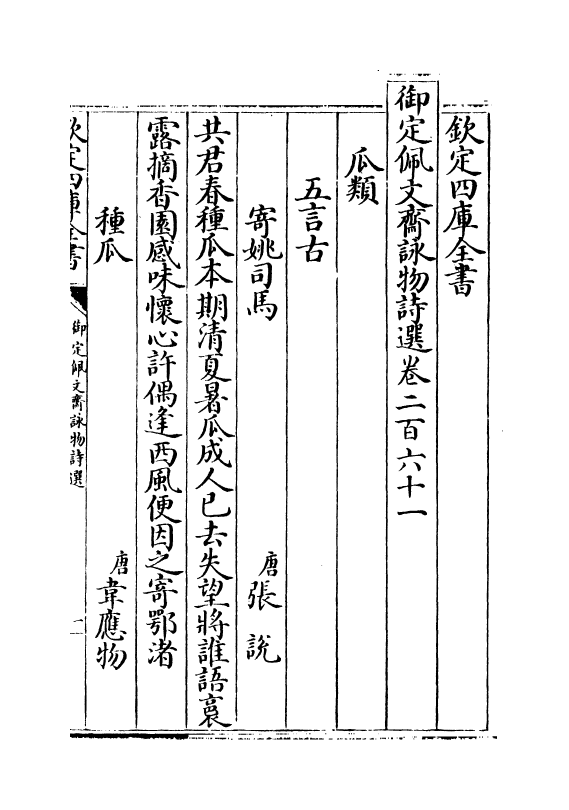 欽定四庫全書
御定佩文齋詠物詩選卷二百六十一
瓜類
五言古
寄姚司馬　唐張說
共君春種瓜本期清夏暑瓜成人已去失望將誰語裛
露摘香園感味懷心許偶逢西風便因之寄鄂渚
種瓜　唐韋應物
欽定四庫全書　御定佩文齋詠物詩選　一